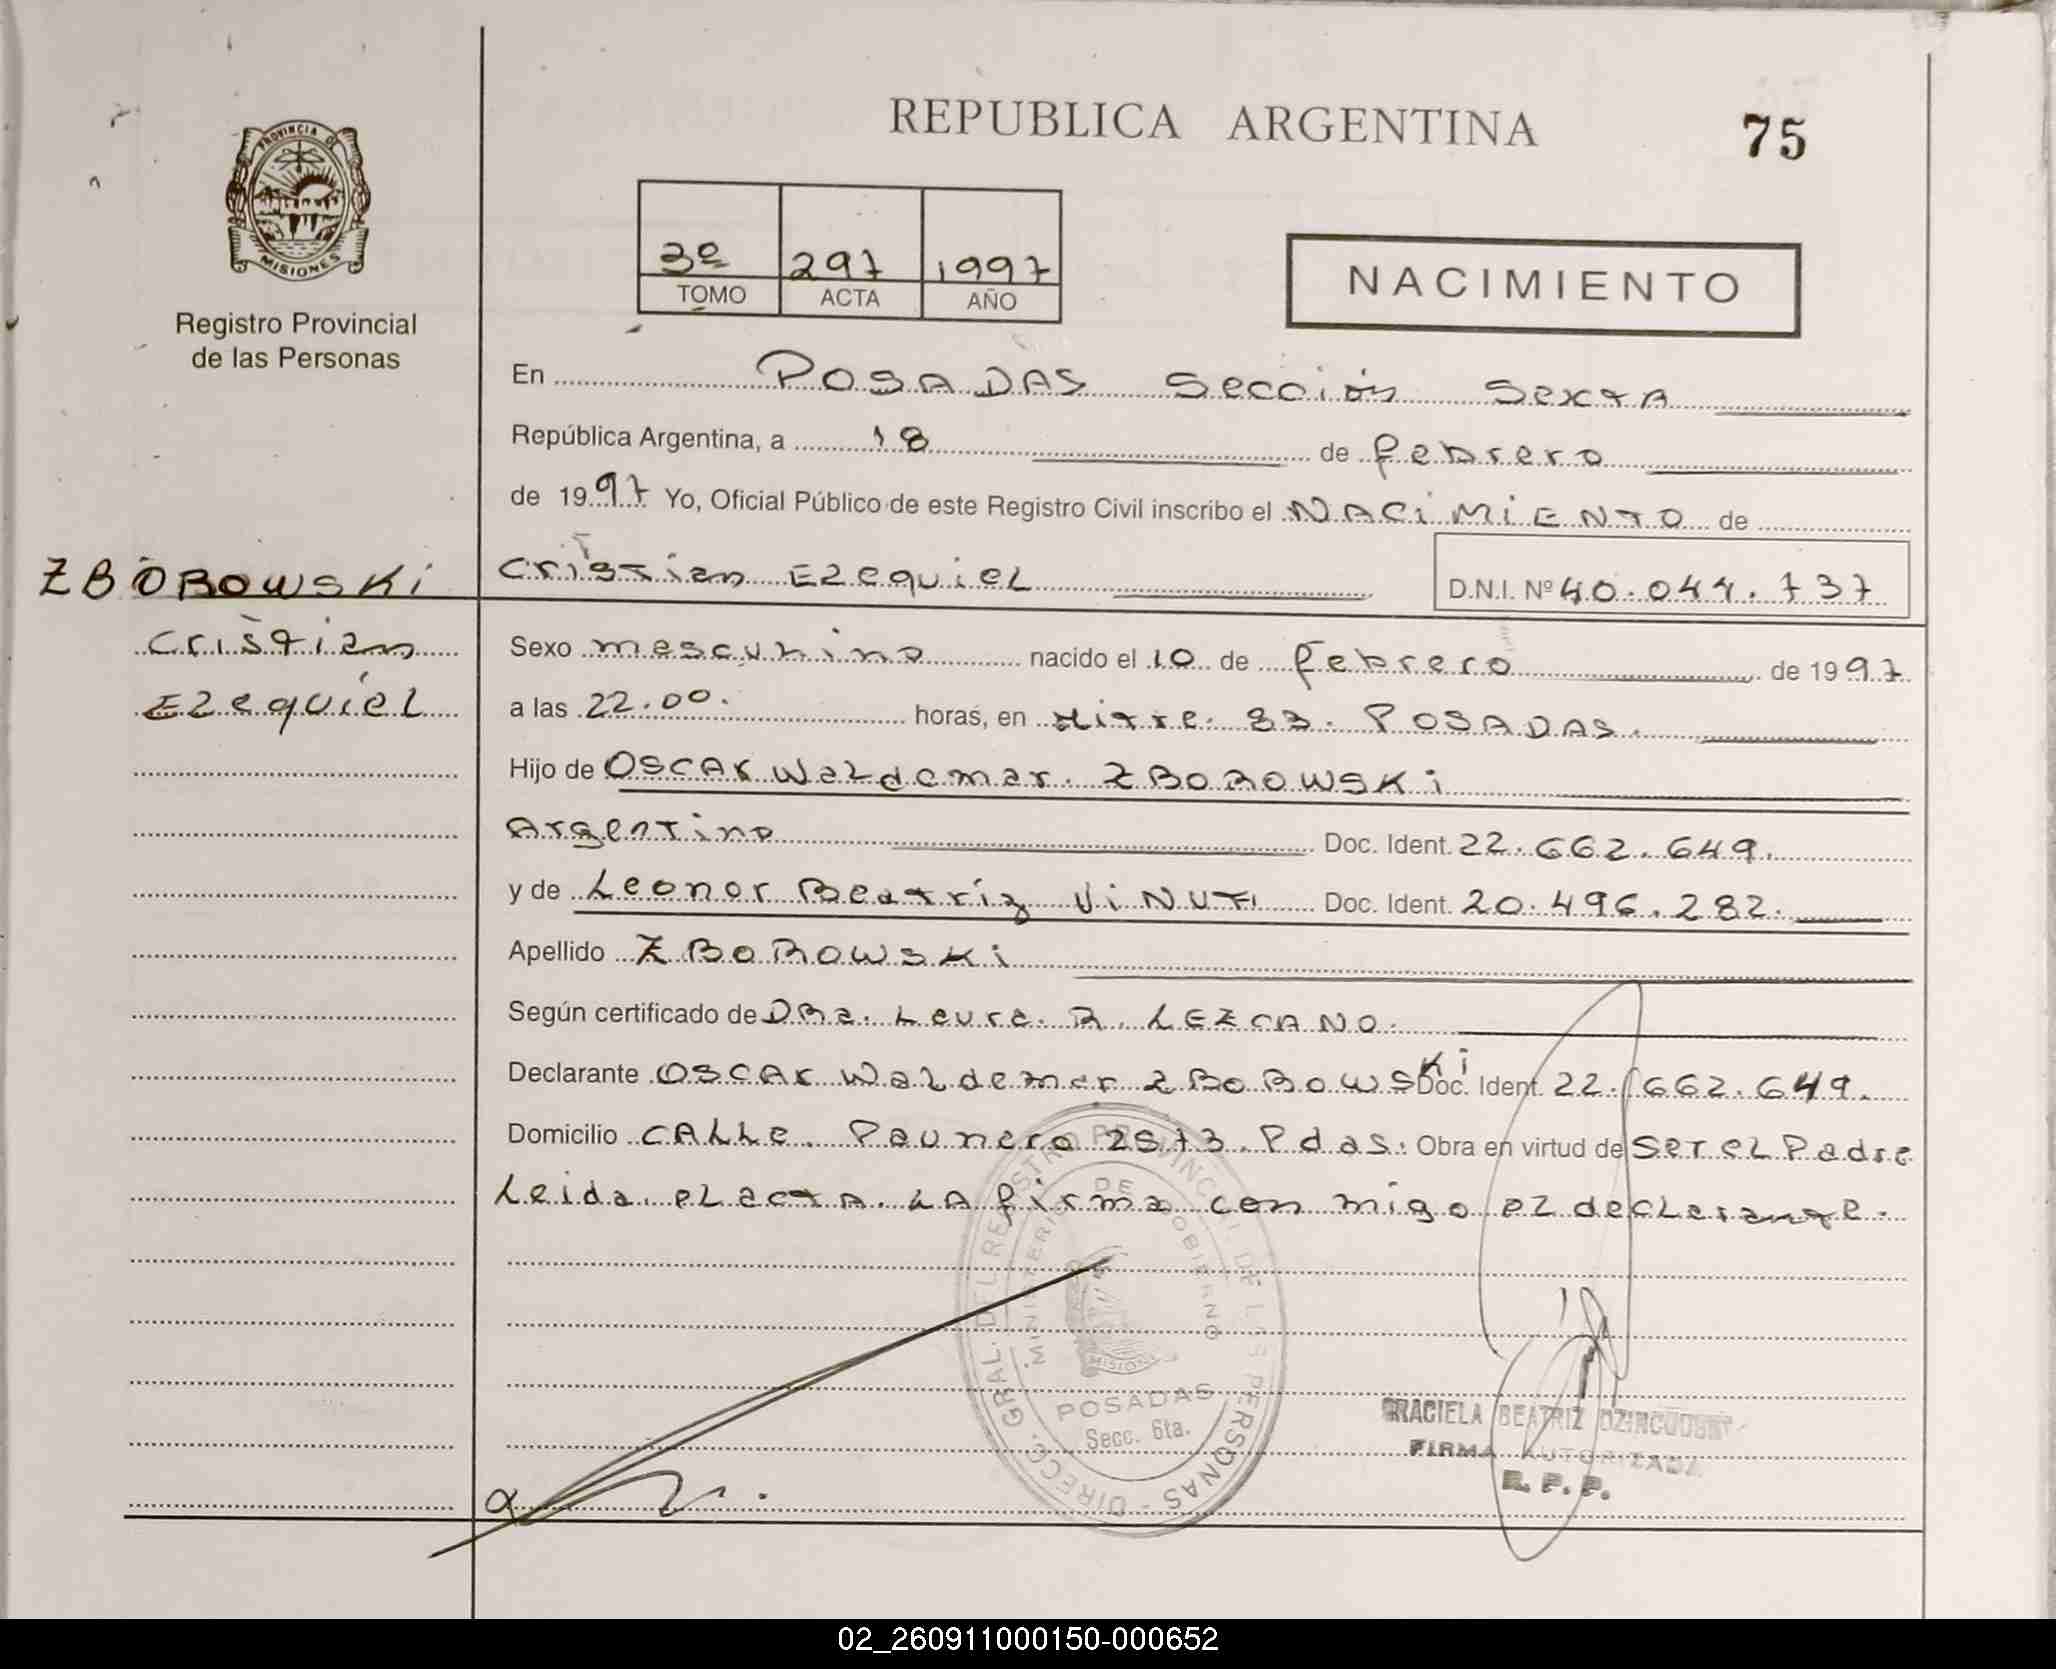 REPUBLICA ARGENTINA
75
PROVINCIA DE
MISIONES
Registro Provincial
de las Personas
3º 297 1997
TOMO ACTA AÑO
NACIMIENTO
En POSADAS Sección Sexta
República Argentina, a 18 de febrero
de 1997 Yo, Oficial Público de este Registro Civil inscribo el NACIMIENTO de
ZBOROWSKI
Cristian
Ezequiel
Cristian Ezequiel D.N.I. Nº 40.044.737
Sexo masculino nacido el 10 de febrero de 1997
a las 22.00. horas, en Mitre. 83. POSADAS.
Hijo de OSCAR Waldemar. ZBOROWSKI
Argentino Doc. Ident. 22.662.649.
y de Leonor Beatriz VINUTI Doc. Ident. 20.496.282.
Apellido ZBOROWSKI
Según certificado de DRa. Laura. R. LEZCANO.
Declarante OSCAR Waldemar ZBOROWSKI Doc. Ident. 22.662.649.
Domicilio CALLE. Paunero 2573. Pdas. Obra en virtud de ser el Padre
Leida el acta. LA firma con migo el declarante.
DIRECC. GRAL. DEL REGISTRO PROVINCIAL DE LAS PERSONAS
MINISTERIO DE GOBIERNO
MISIONES
POSADAS
Secc. 6ta.
GRACIELA BEATRIZ
FIRMA AUTORIZADA
R. P. P.
02_260911000150-000652